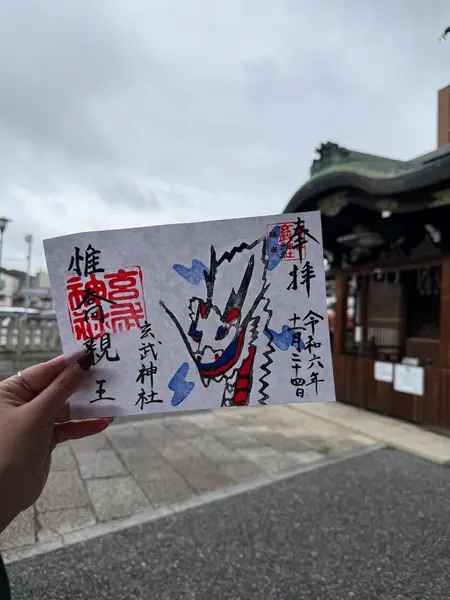 奉拝
令和六年
十一月二十四日
玄武神社
玄武
神社
惟喬親王